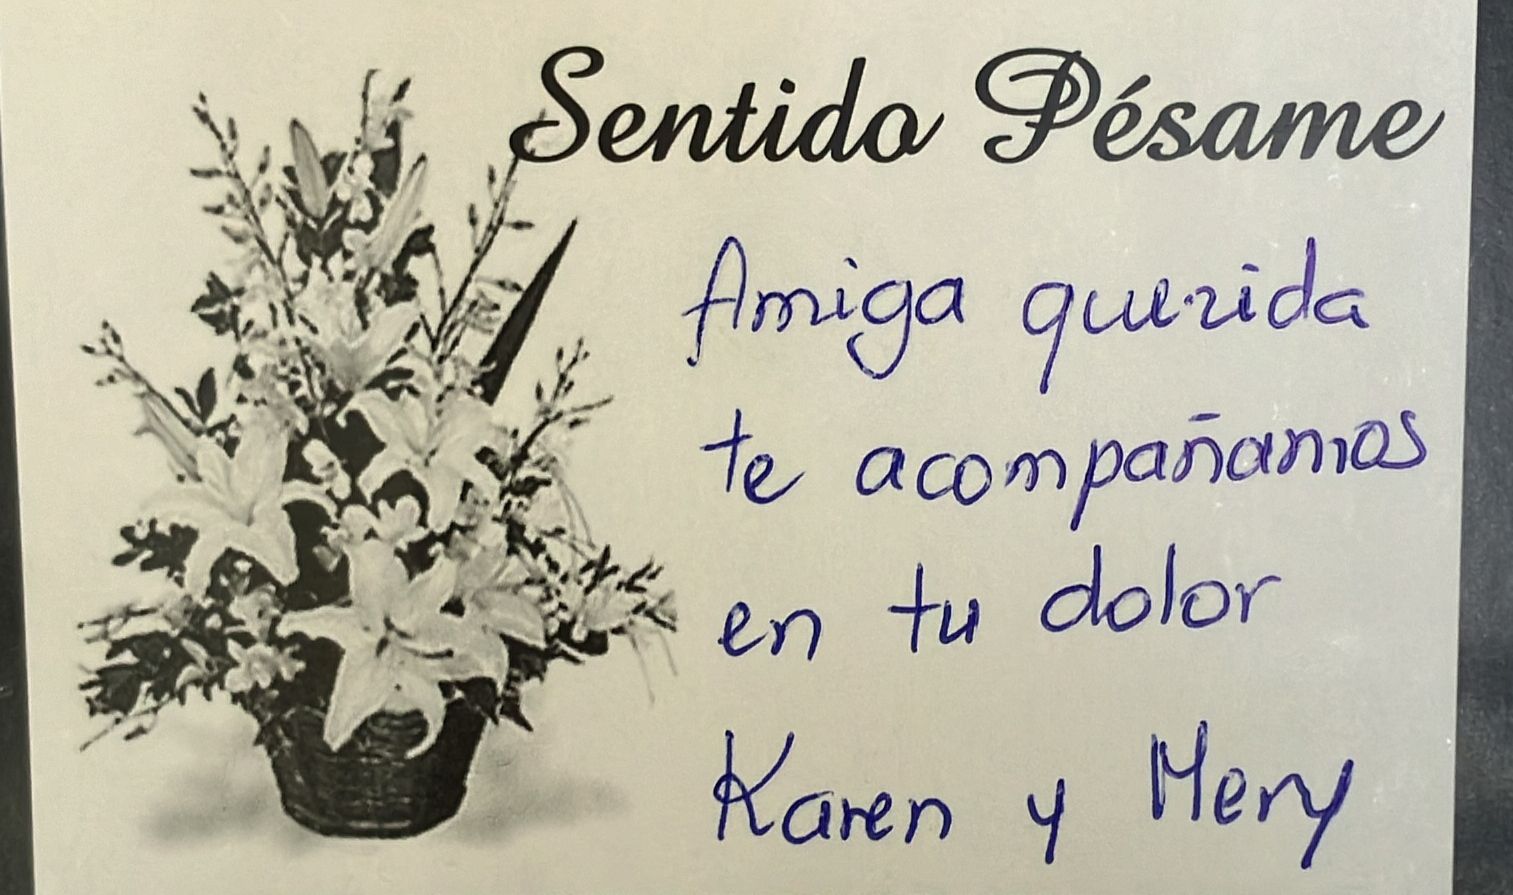 Sentido Pésame
Amiga querida
te acompañamos
en tu dolor
Karen y Mery